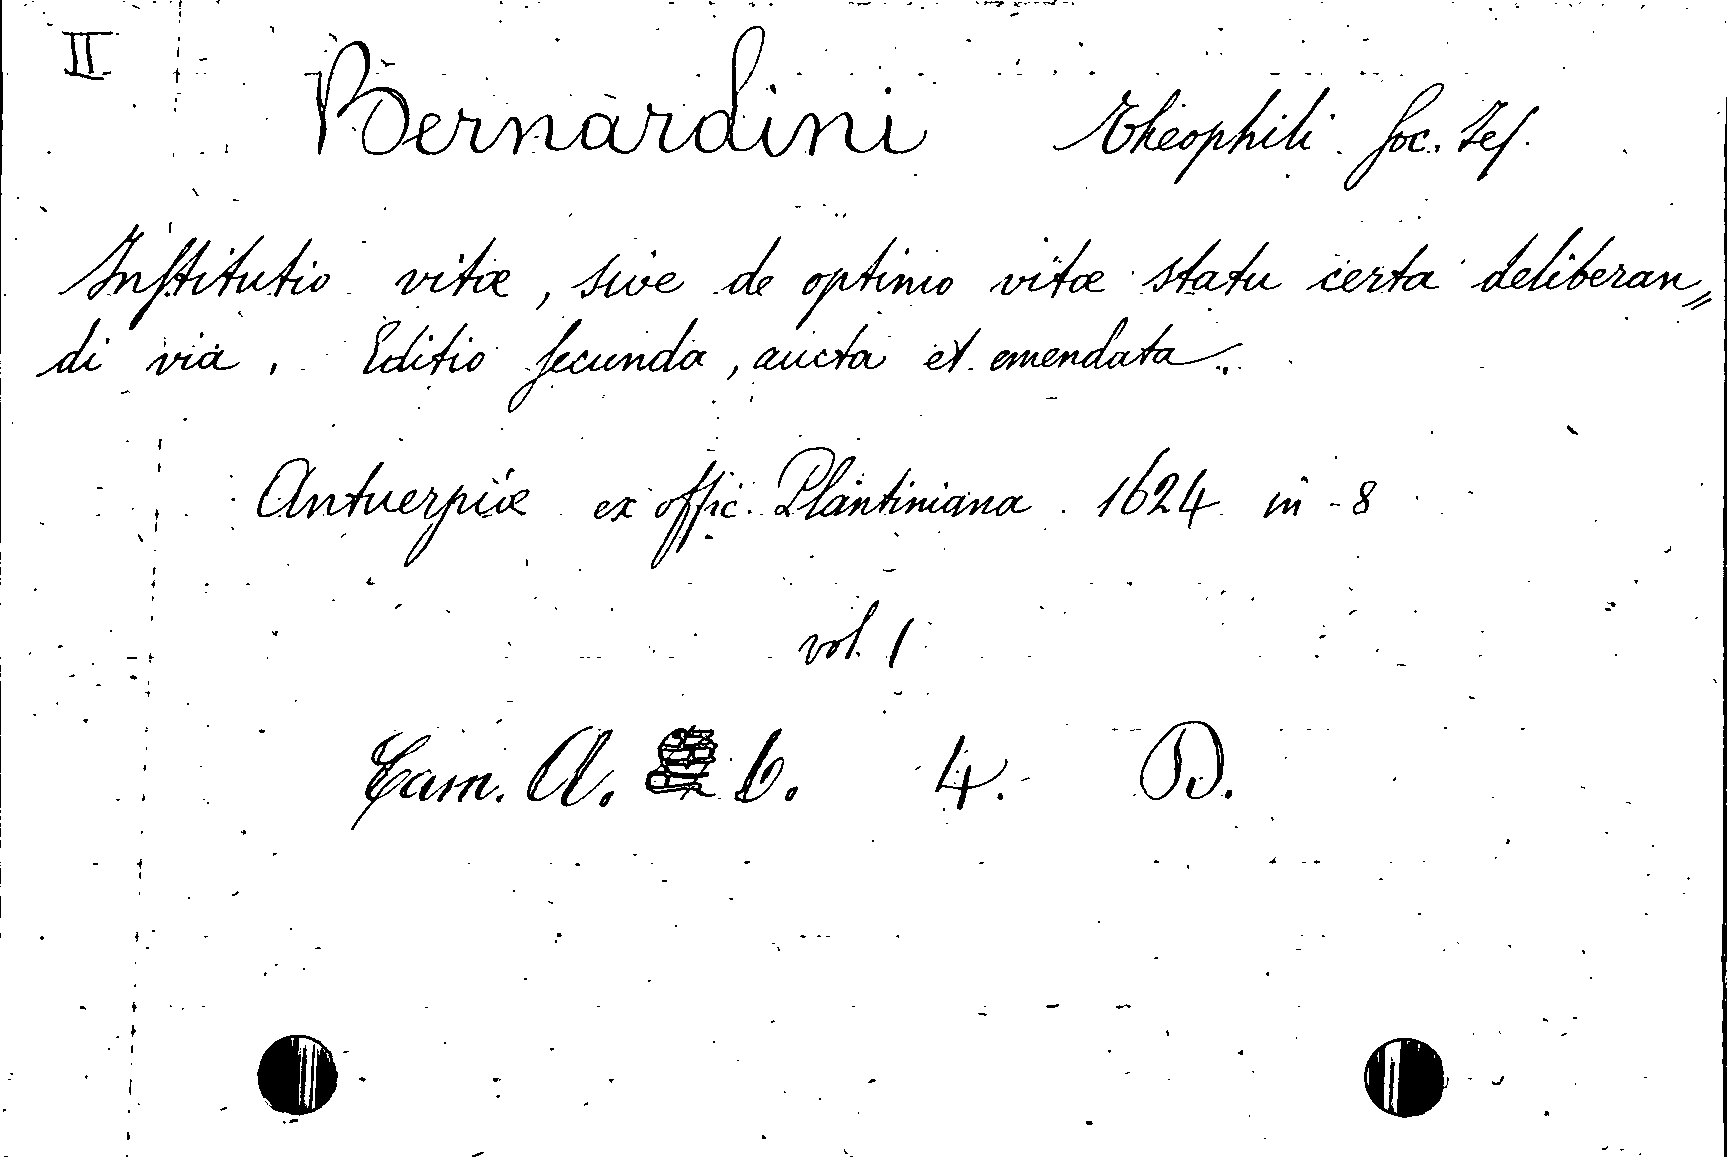 II
Bernardini Theophili Soc. Jes.
Institutio vitæ, sive de optimo vitæ statu certa deliberan„
di via. Editio secunda, aucta et emendata.
Antuerpiæ ex offic. Plantiniana 1624 in-8
vol. 1
Cam. A. b. 4. D.